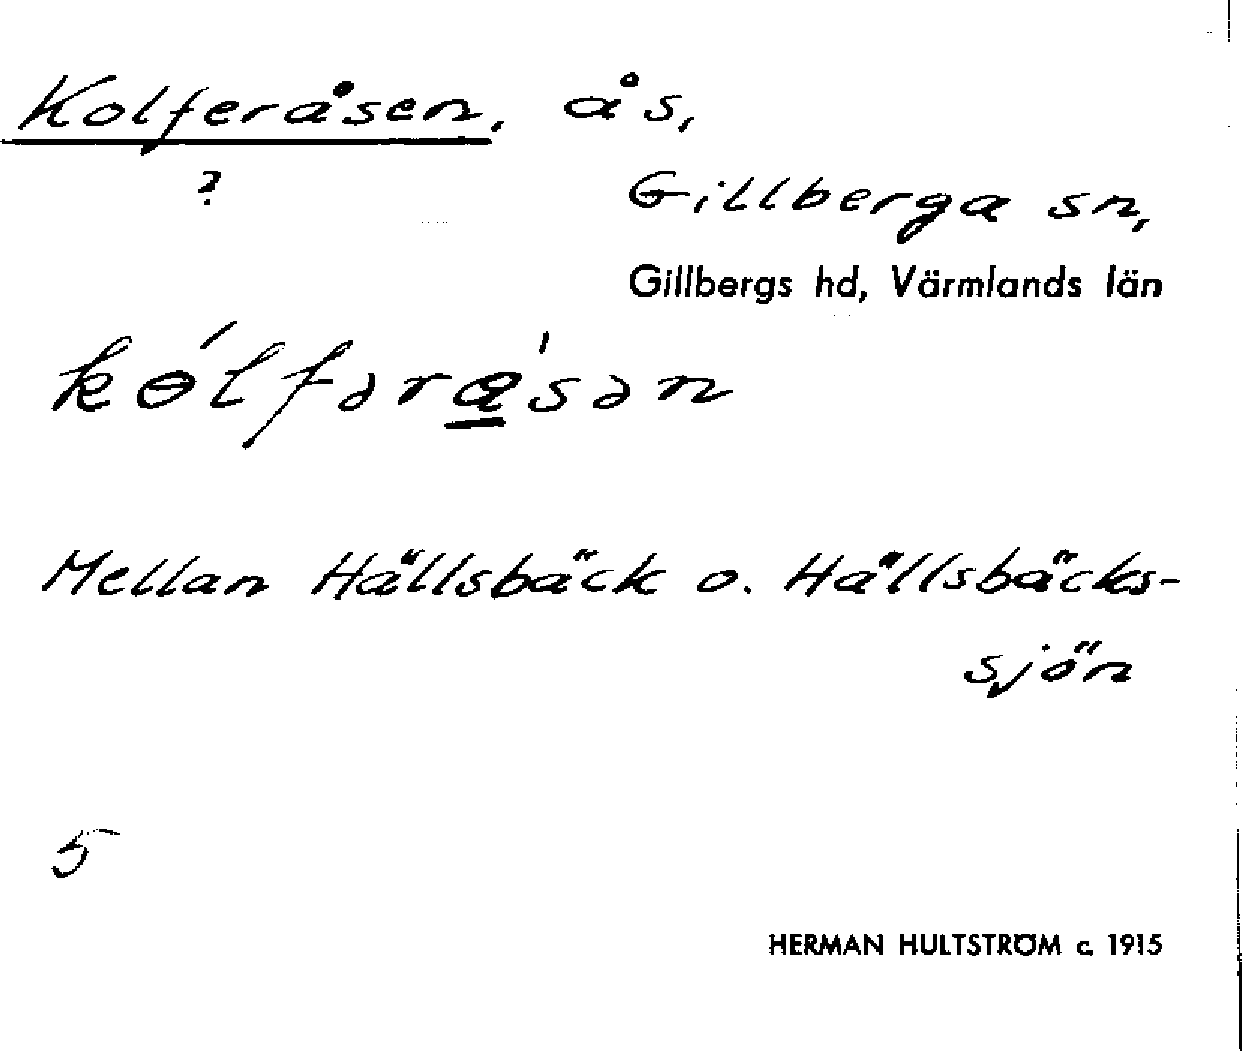 Kolferåsen, ås,
?
Gillberga sn,
Gillbergs hd, Värmlands län
kɵ́lfərå̲'sən
Mellan Hällsbäck o. Hällsbäcks-
sjön
5
HERMAN HULTSTRÖM c. 1915